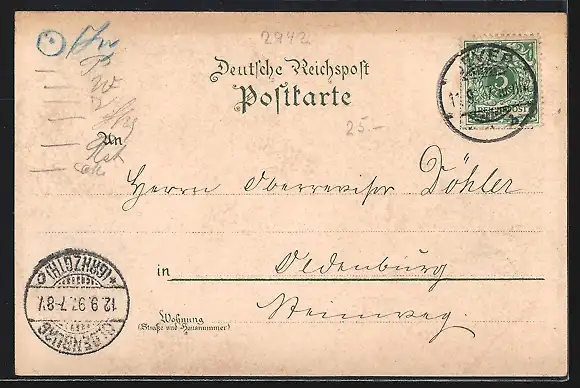 2942
Deutsche Reichspost
Postkarte
25.-
5
REICHSPOST
An
Herrn Oberrevisor Döhler
in Oldenburg
Steinweg.
Wohnung
(Straße und Hausnummer)
OLDENBURG
12.9.97.7-8V.
*(GRHZGTH)c